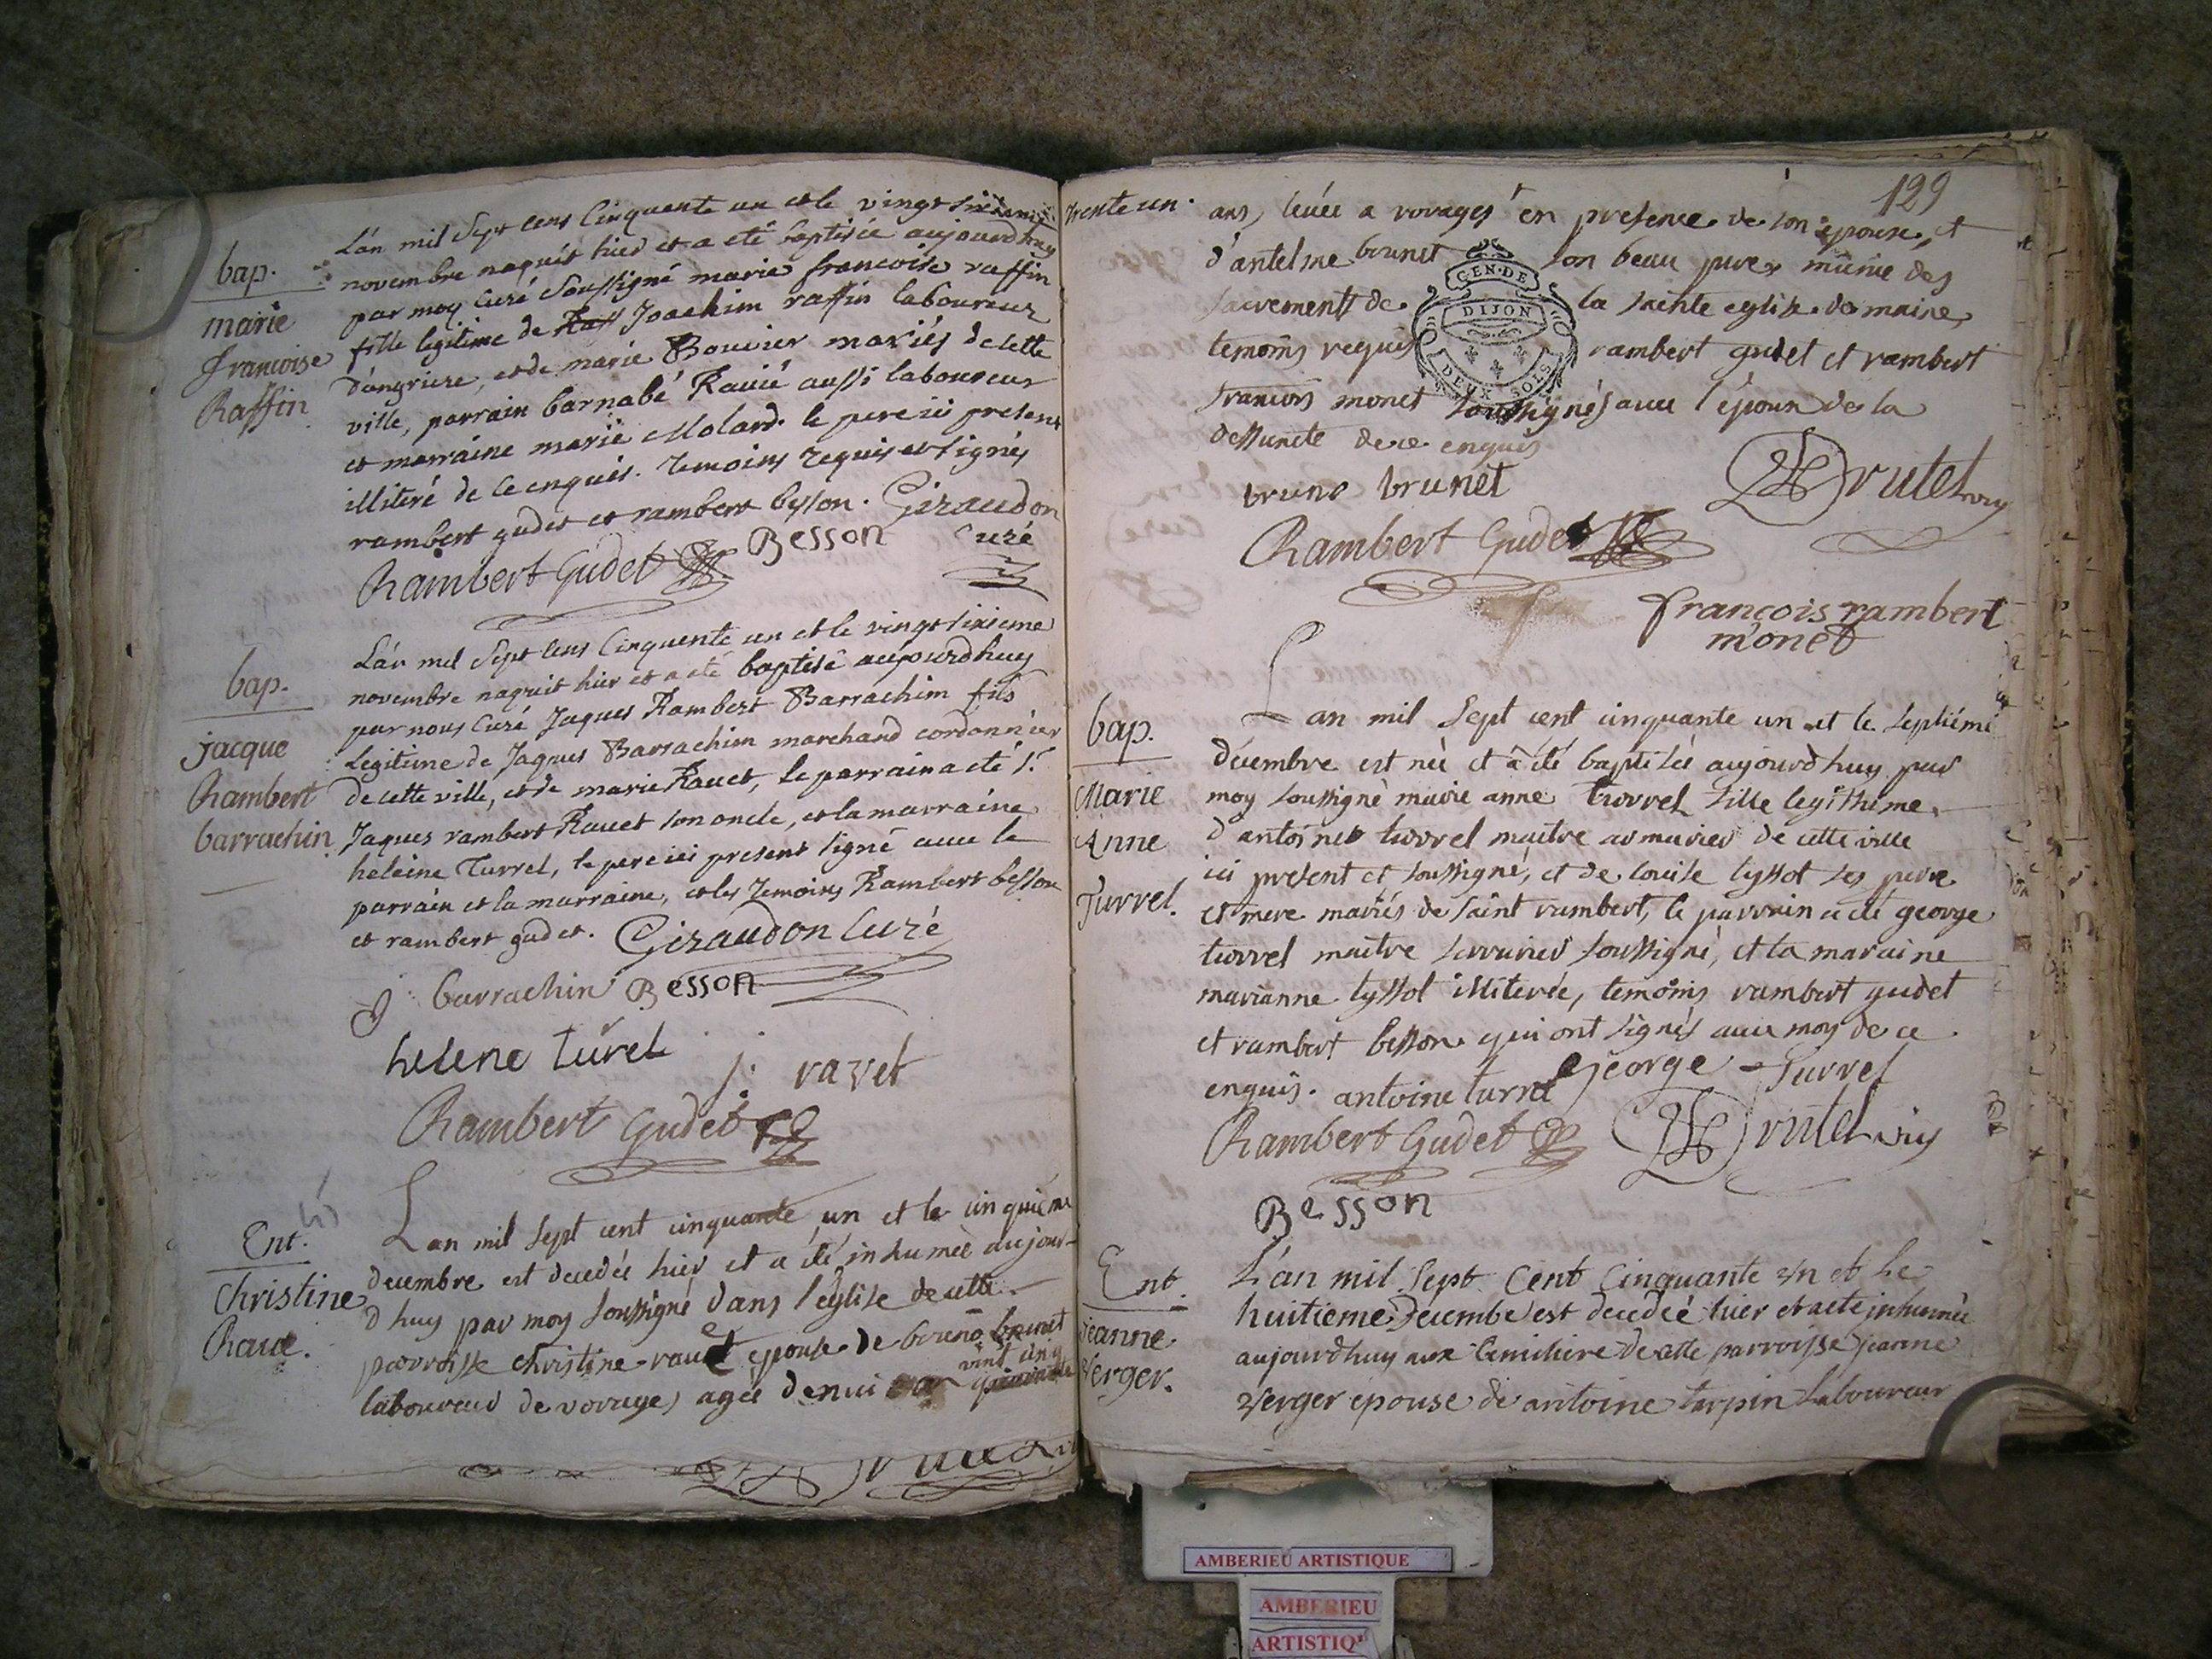 bap.
marie
francoise
Raffin
L'an mil Sept Cens Cinquente un et le vingt sixieme
novembre naquit hier et a eté baptisée aujourdhuy
par moy Curé Soussigné marie francoise raffin
fille legitime de Joachim raffin laboureur
d'angriere, et de marie Bouvier mariés de cette
ville, parrain barnabé Ravié aussi laboureur
et marraine marie Molard. le pere ici present
illiteré de ce enquis. temoins requis et signés
rambert gudet et rambert besson. Giraudon
Curé
Rambert Gudet Besson
bap.
jacque
Rambert
barrachin
L'an mil Sept Cens Cinquente un et le vingt sixieme
novembre naquit hier et a eté baptisé aujourdhuy
par nous Curé Jaques Rambert Barrachim fils
Legitime de Jaques Barrachim marchand cordonnier
de cette ville, et de marie Ravet, le parrain a eté S.
Jaques rambert Ravet son oncle, et la marraine
heleine Turrel, le pere ici present signé avec le
parrain et la marraine, et les temoins Rambert besson
et rambert gudet. Giraudon Curé
j barrachin Besson
helene turel
j: ravet
Rambert Gudet
Ent.
Christine
Rave.
Lan mil sept cent cinquante un et le cinquieme
decembre est decedée hier et a été inhumée aujour-
d huy par moy soussigné dans l'eglise de cette
parroisse christine ravet epouse de bruno brunet
laboureur de vorages agée denvi
vint cinq
trente un.
129
ans, levée a vorages en presence de son epoux, et
d'antelme brunet son beau pere, munie des
sacrements de la sainte eglise
temoins requis rambert gudet et rambert
francois monet soussignés avec l'époux de la
deffuncte de ce enquis
GEN. DE
DIJON
DEUX SOLS
bruno brunet
Rambert Gudet
françois rambert
monet
bap.
Marie
Anne
Turrel.
Lan mil sept cent cinquante un et le septiéme
décembre est née et a été baptisée aujourdhuy par
moy soussigné marie anne turrel fille legithime
d'antoine turrel maitre armurier de cette ville
ici present et soussigné, et de louise tyssot ses pere
et mere mariés de saint rambert, le parrain a été george
turrel maitre serrurier soussigné, et la maraine
marianne tyssot illiterée, temoins rambert gudet
et rambert besson qui ont signés avec moy de ce
enquis. antoine turrel George Turrel
Rambert Gudet
Besson
Ent.
jeanne
Verger.
L'an mil Sept Cent Cinquante un et Le
huitieme Decembre est decedeé hier et a eté inhumée
aujourdhuy aux Cimitiere de cette parroisse jeanne
Verger epouse de antoine turpin Laboureur
AMBERIEU ARTISTIQUE
AMBERIEU
ARTISTIQ